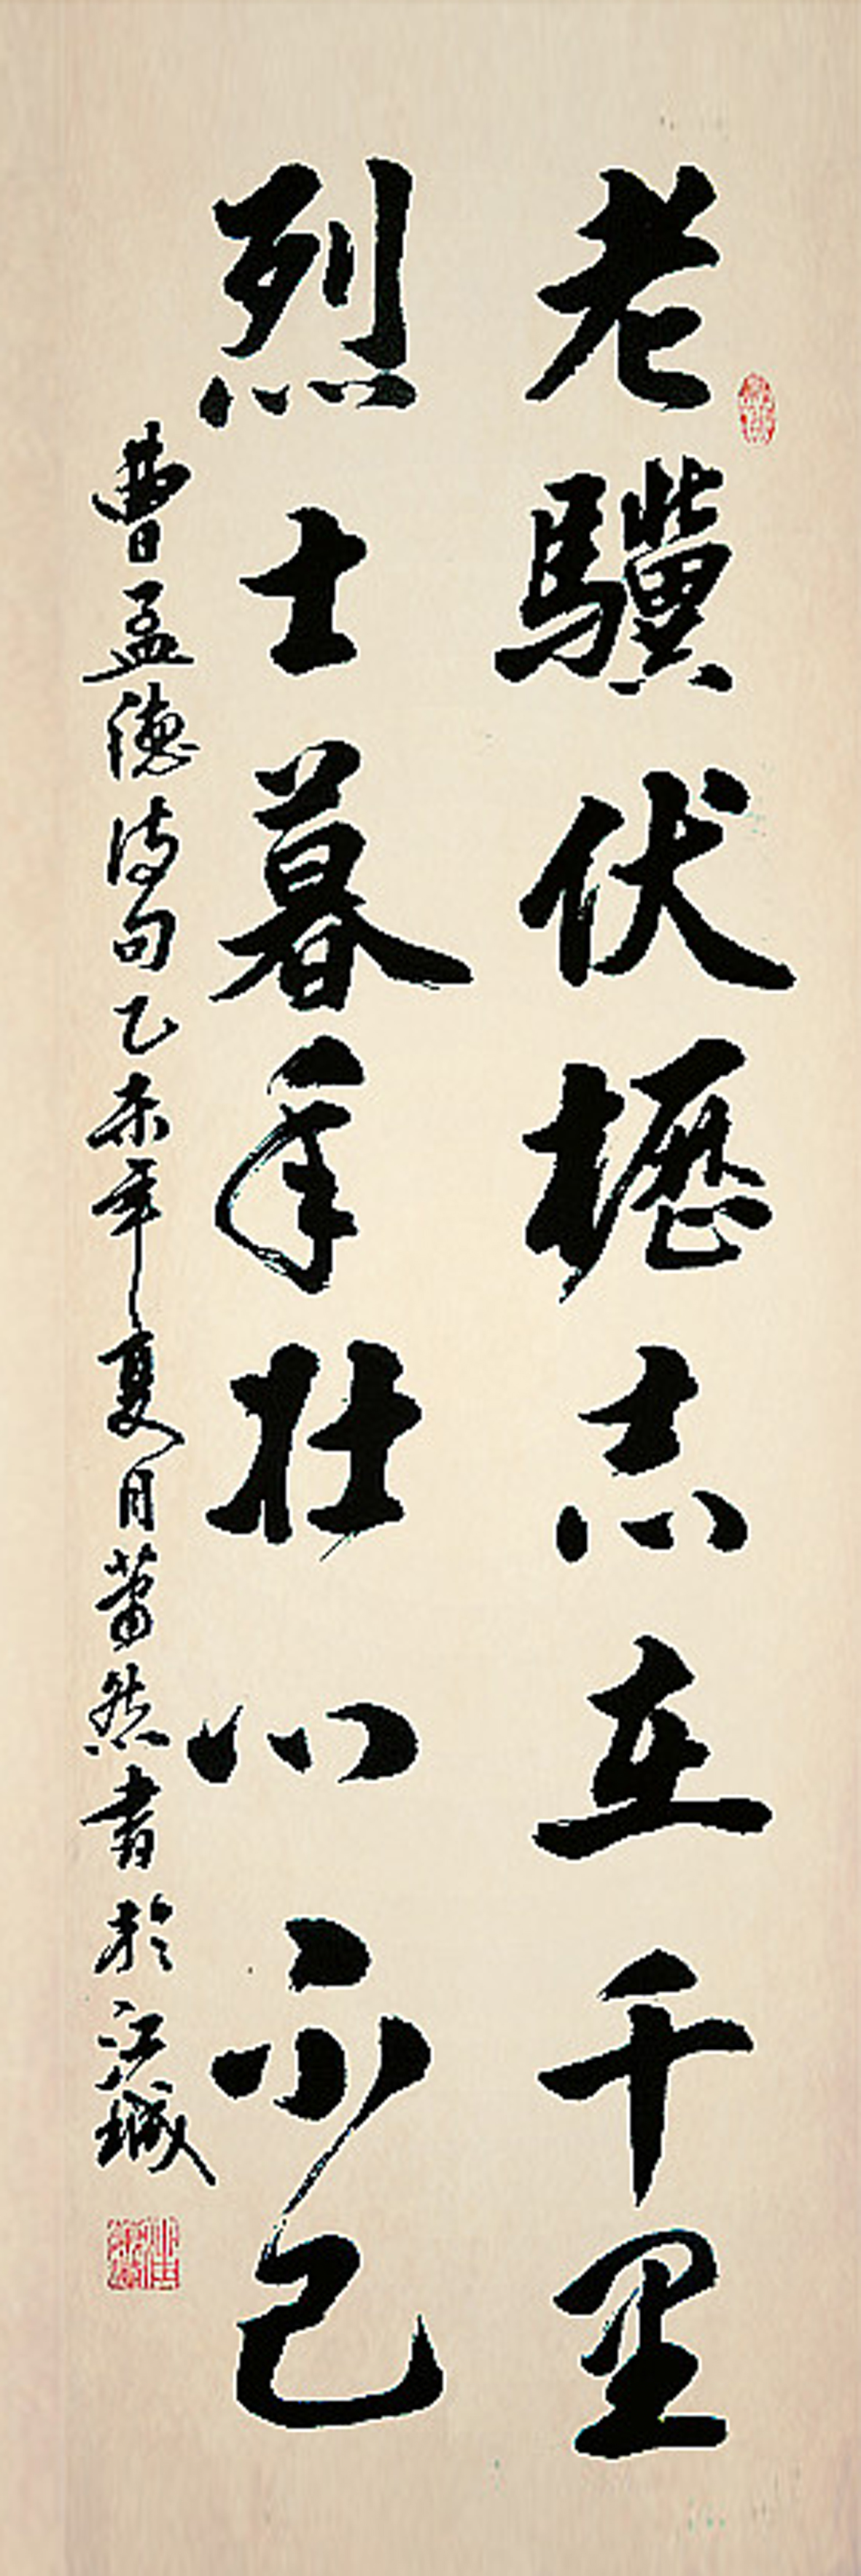 老驥伏櫪志在千里
烈士暮年壮心不已
曹孟德诗句乙未年夏月萧然書於江城